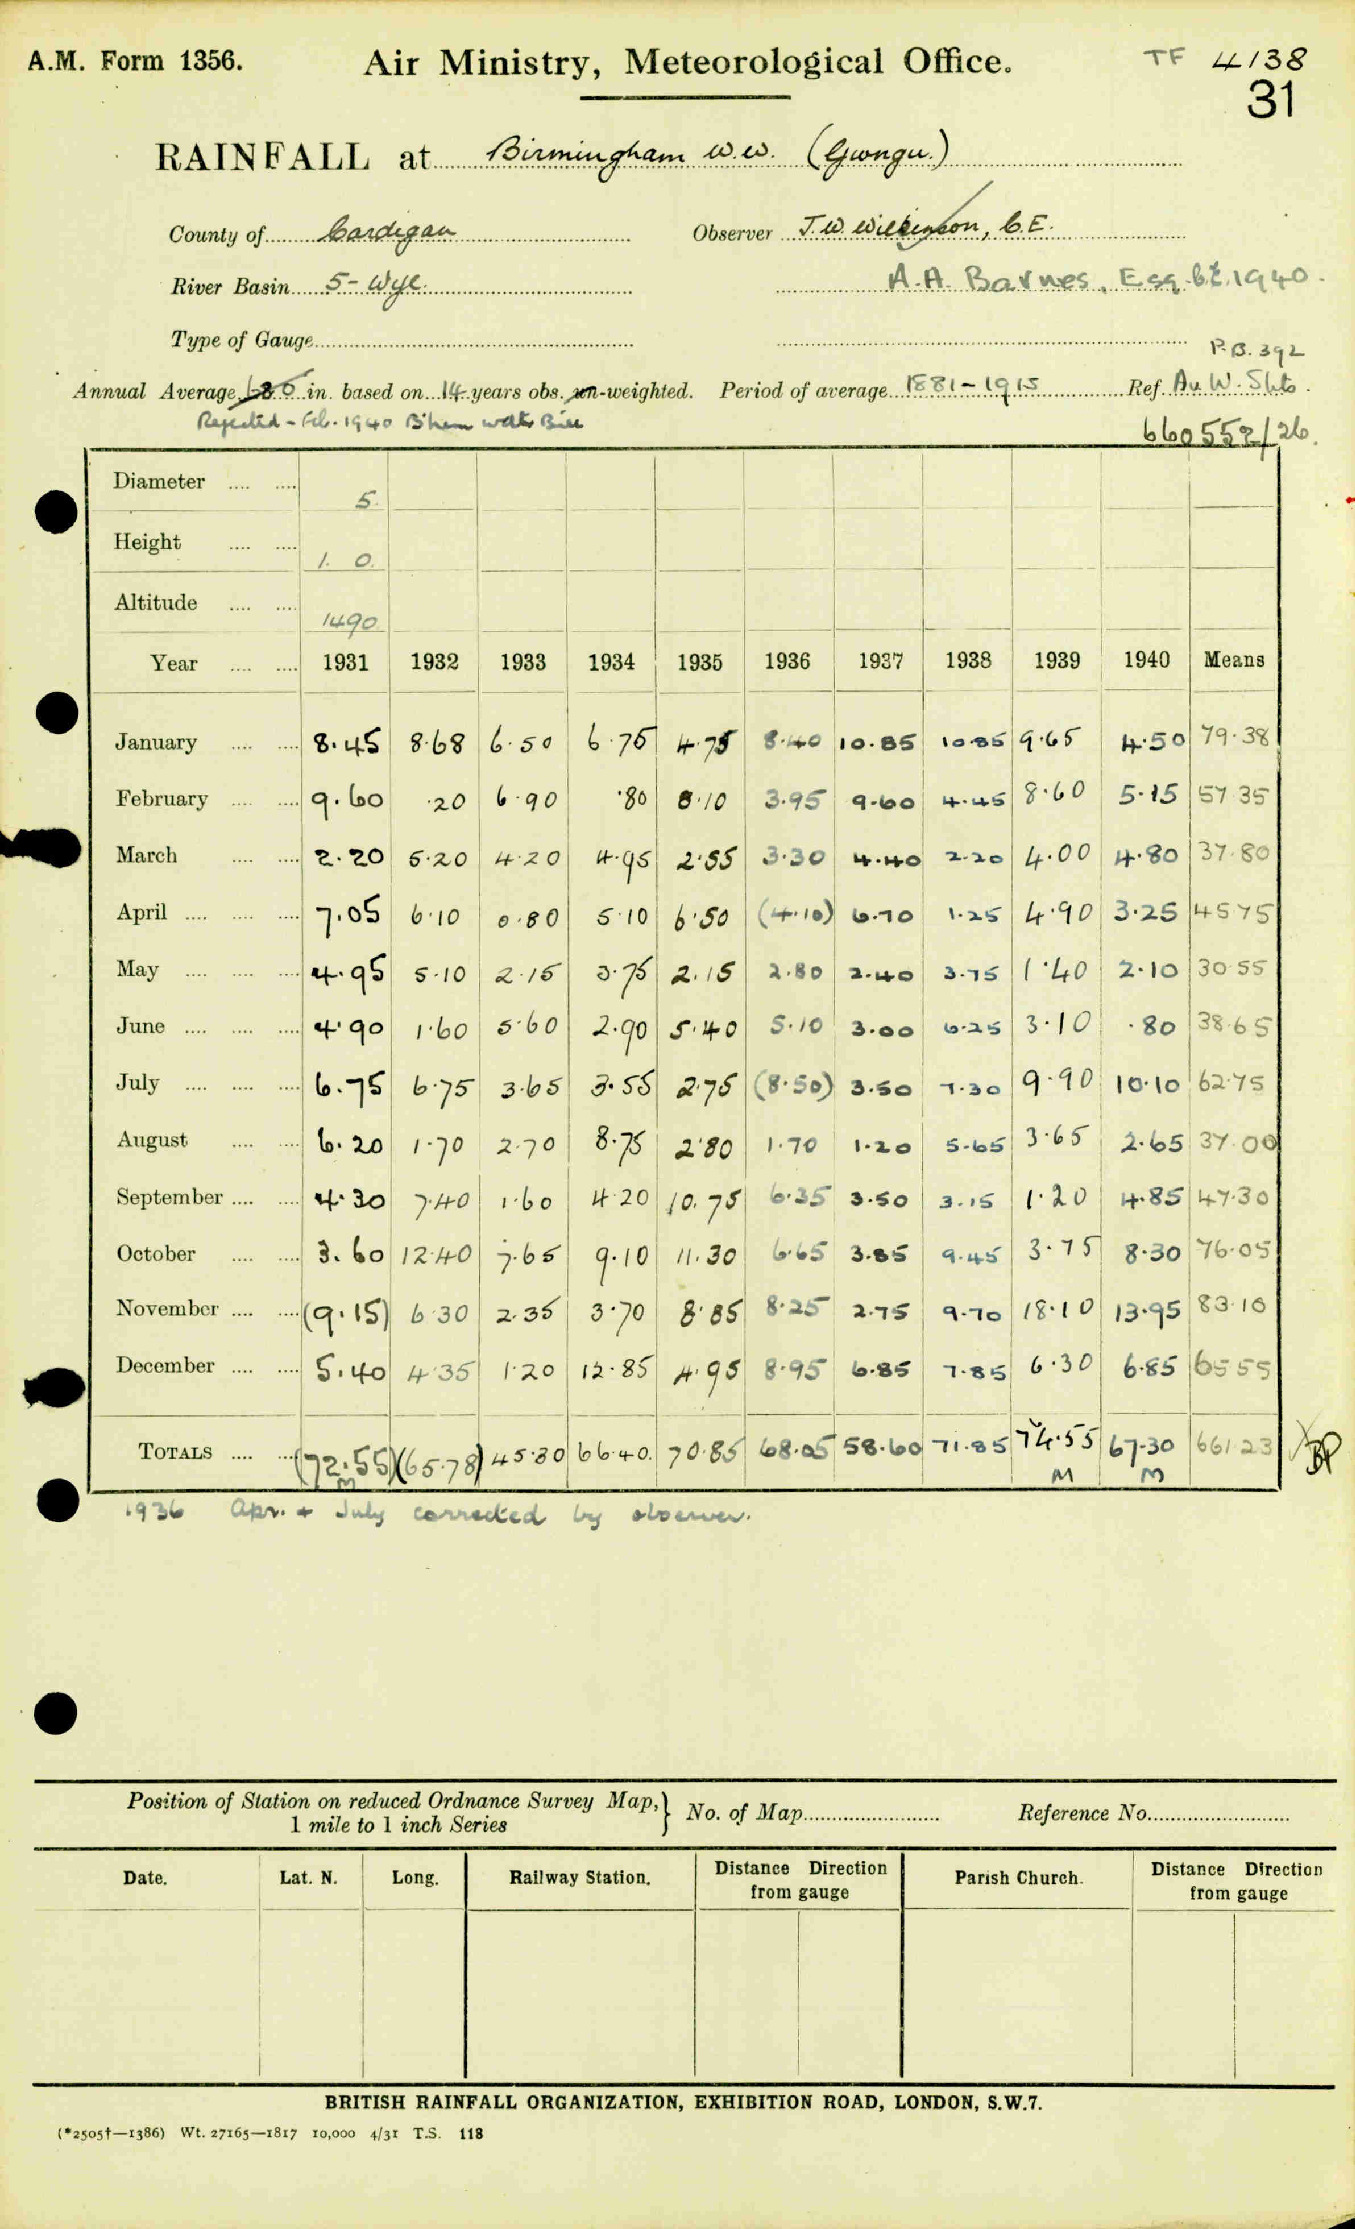 A.M. Form 1356. Air Ministry, Meteorological Office. TF 4138
31
RAINFALL at Birmingham W.W. (Gwngu.)
County of Cardigan Observer J.W. Wilkinson, C.E.
River Basin 5 - Wye A.A. Barnes, Esq. C.E. 1940.
Type of Gauge
P.B. 392
Annual Average 68.0 in. based on 14 years obs. un-weighted. Period of average 1881-1915 Ref. Au W. Shts.
Rejected - Feb. 1940 B'ham 660552/26
Diameter 5.
Height 1. 0.
Altitude 1490
Year 1931 1932 1933 1934 1935 1936 1937 1938 1939 1940 Means
January 8.45 8.68 6.50 6.75 4.75 8.40 10.85 10.85 9.65 4.50 79.38
February 9.60 .20 6.90 .80 8.10 3.95 9.60 4.45 8.60 5.15 57 35
March 2.20 5.20 4.20 4.95 2.55 3.30 4.40 2.20 4.00 4.80 37.80
April 7.05 6.10 0.80 5.10 6.50 (4.10) 6.70 1.25 4.90 3.25 45 75
May 4.95 5.10 2.15 3.75 2.15 2.80 2.40 3.75 1.40 2.10 30 55
June 4.90 1.60 5.60 2.90 5.40 5.10 3.00 6.25 3.10 .80 38.65
July 6.75 6.75 3.65 3.55 2.75 (8.50) 3.50 7.30 9.90 10.10 62.75
August 6.20 1.70 2.70 8.75 2.80 1.70 1.20 5.65 3.65 2.65 37.00
September 4.30 7.40 1.60 4.20 10.75 6.35 3.50 3.15 1.20 4.85 47.30
October 3.60 12.40 7.65 9.10 11.30 6.65 3.85 9.45 3.75 8.30 76.05
November (9.15) 6.30 2.35 3.70 8.85 8.25 2.75 9.70 18.10 13.95 83.10
December 5.40 4.35 1.20 12.85 4.95 8.95 6.85 7.85 6.30 6.85 65 55
TOTALS (72.55) (65.78) 45.30 66.40. 70.85 68.05 58.60 71.85 74.55 67.30 661.23 BP
M M M
1936 Apr. + July corrected by observer.
Position of Station on reduced Ordnance Survey Map, 1 mile to 1 inch Series } No. of Map Reference No.
Date. Lat. N. Long. Railway Station. Distance Direction from gauge Parish Church. Distance Direction from gauge
BRITISH RAINFALL ORGANIZATION, EXHIBITION ROAD, LONDON, S.W.7.
(*2505†—1386) Wt. 27165—1817 10,000 4/31 T.S. 118